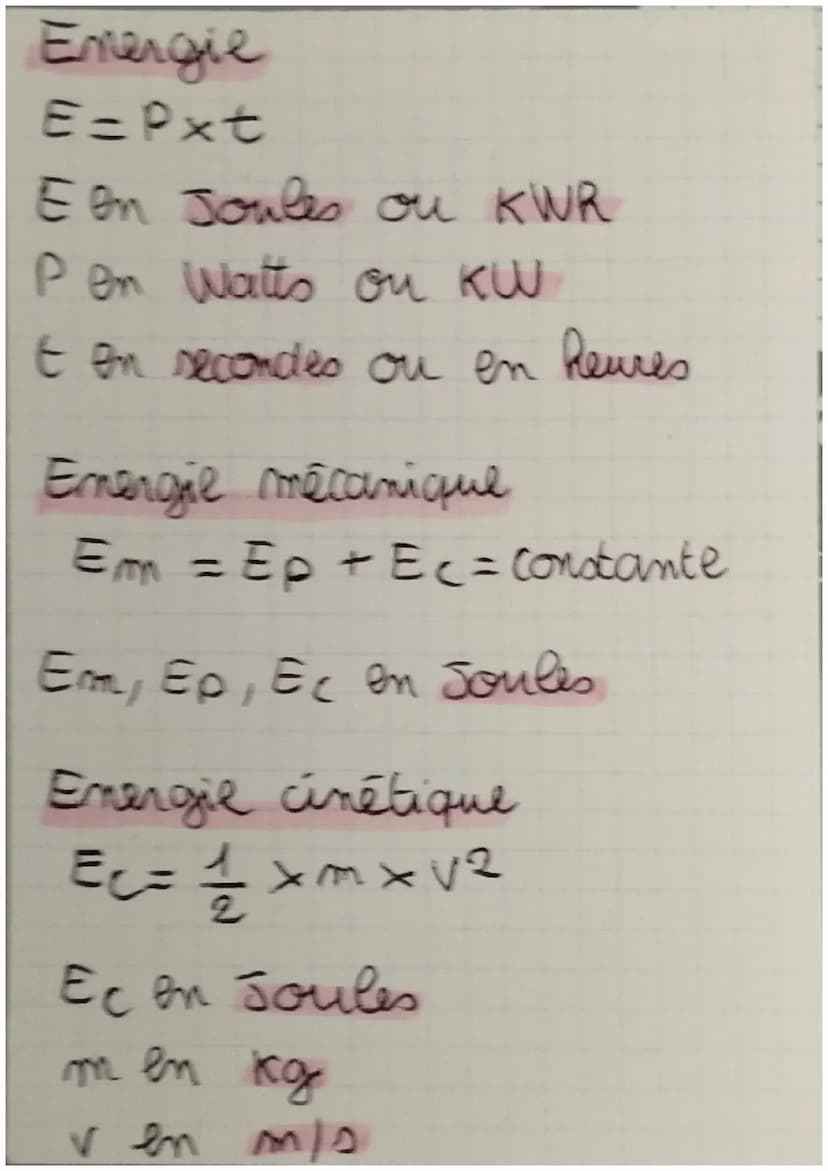 Energie
E = P x t
E en Joules ou KWh
P en Watts ou KW
t en secondes ou en heures
Energie mécanique
Em = Ep + Ec = constante
Em, Ep, Ec en Joules
Energie cinétique
Ec = 1/2 x m x v²
Ec en Joules
m en kg
v en m/s